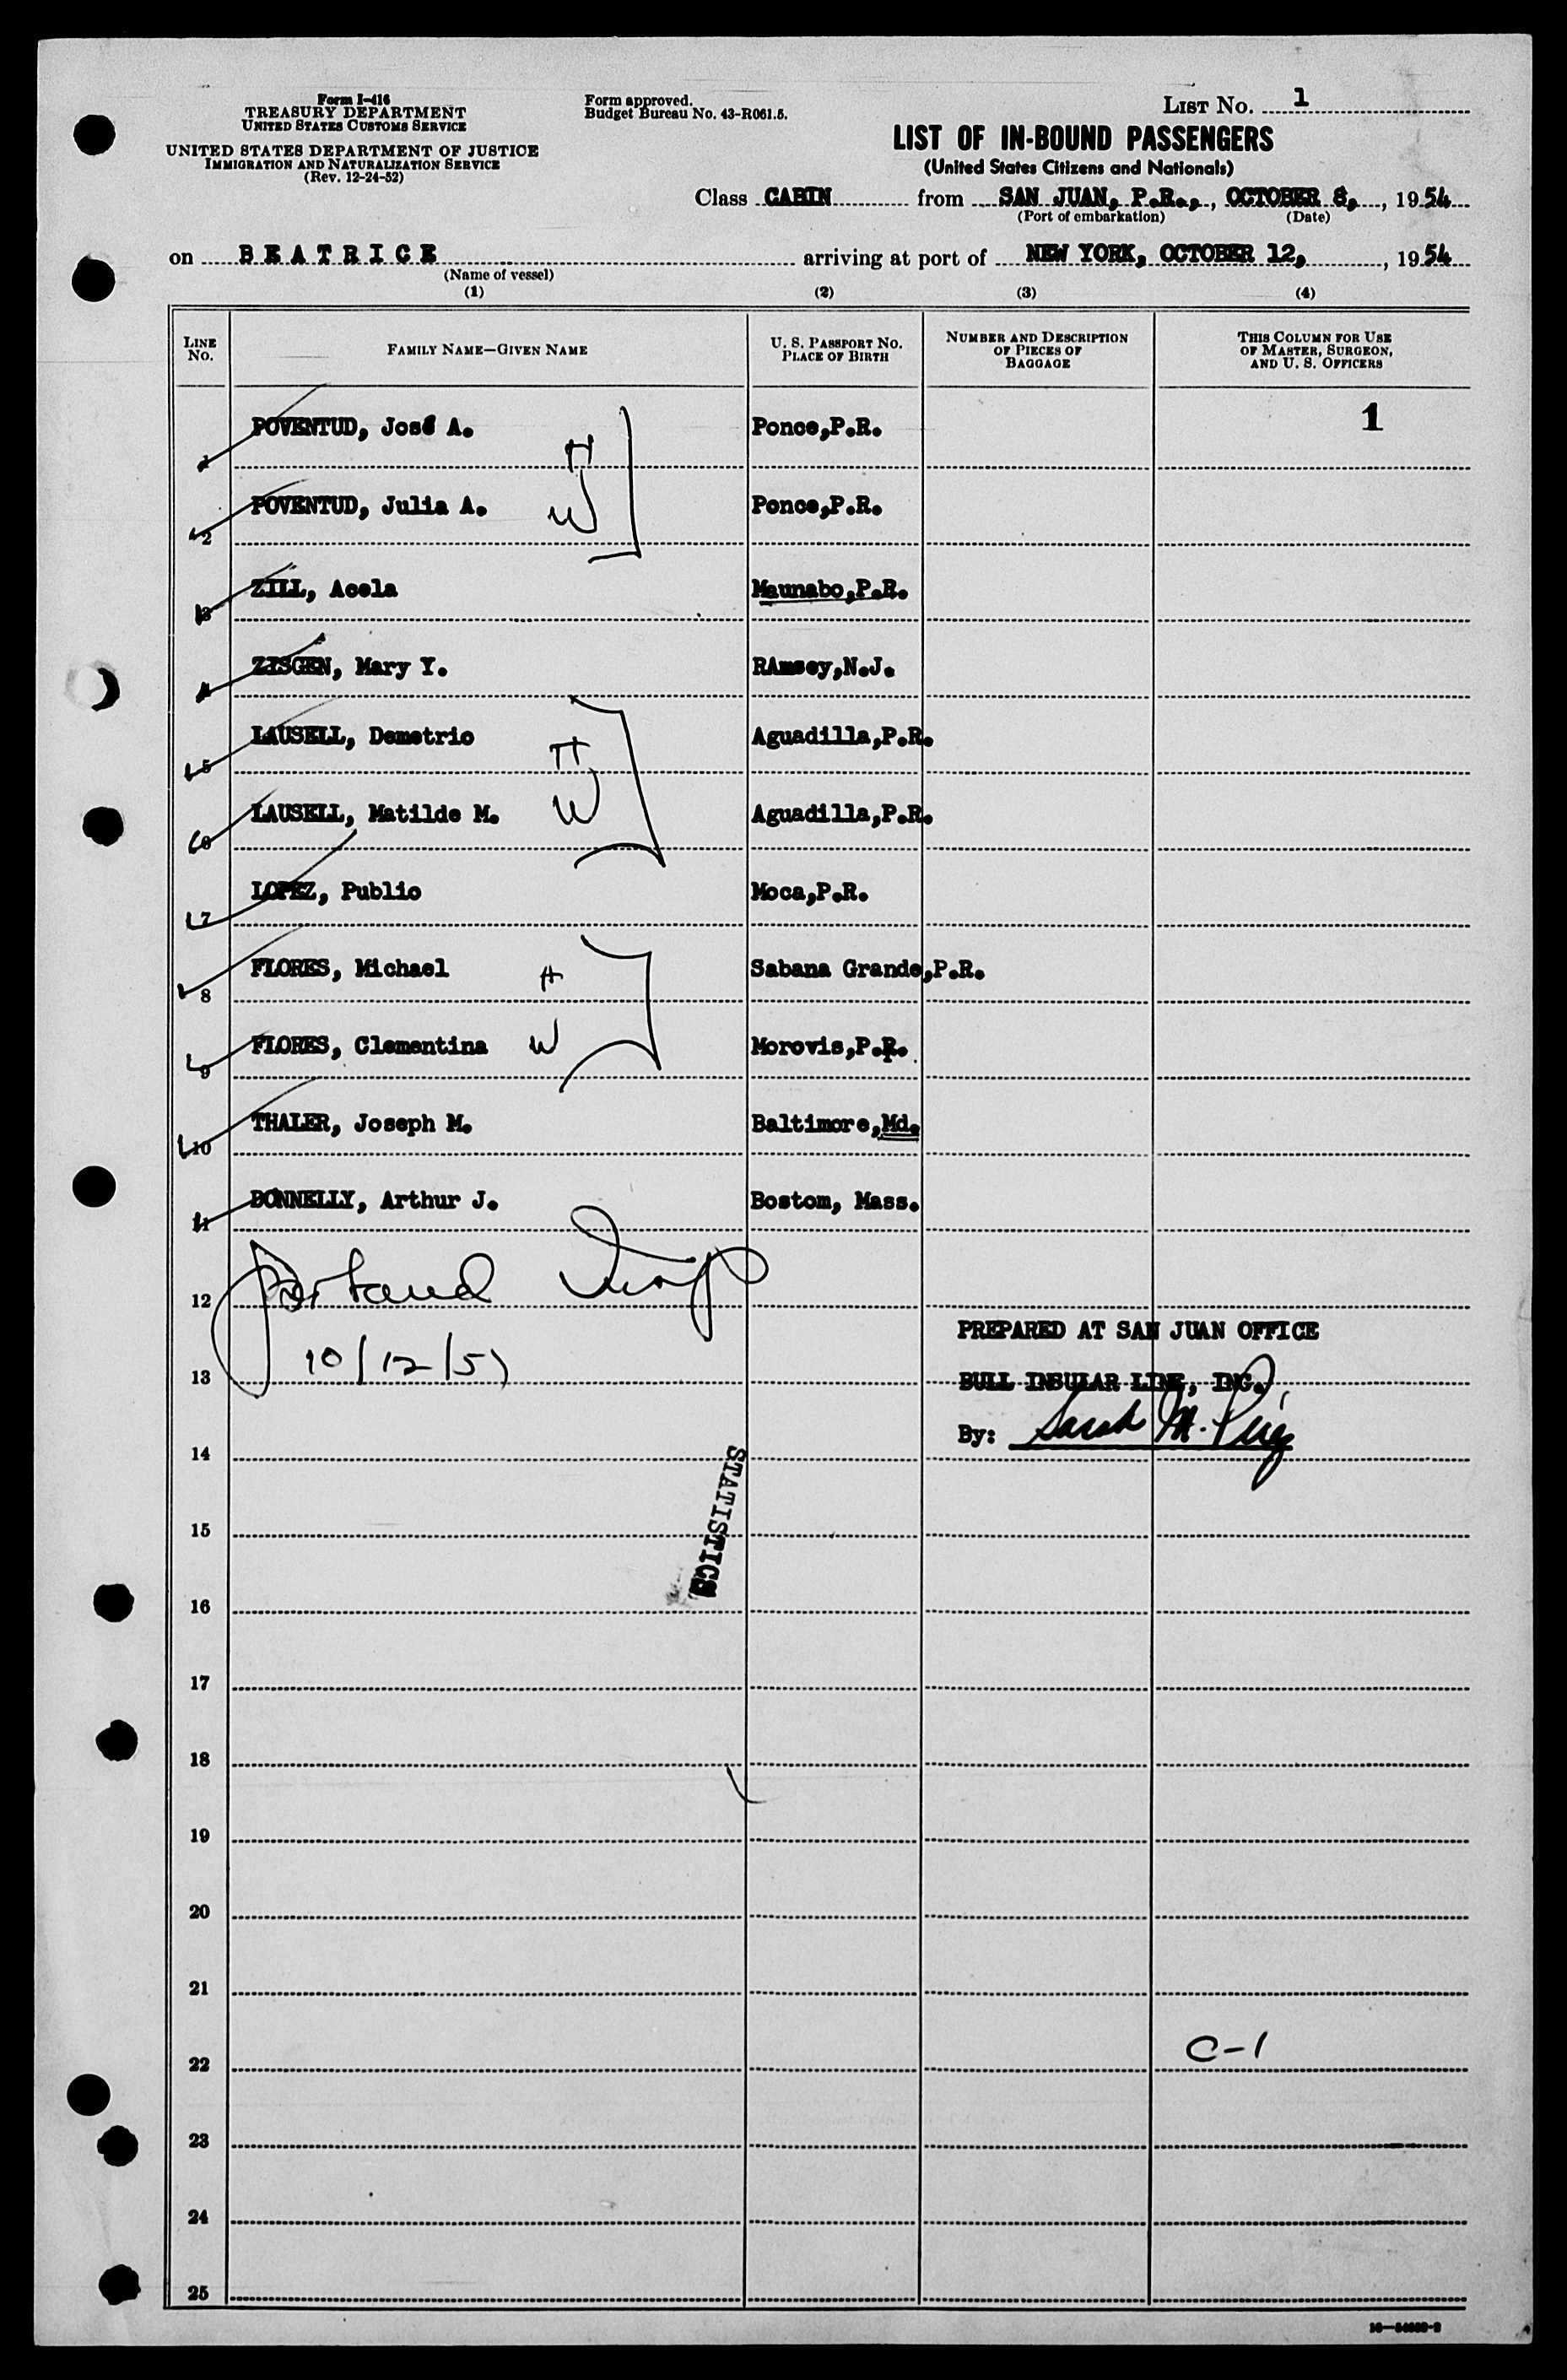 Form I-416
TREASURY DEPARTMENT
UNITED STATES CUSTOMS SERVICE
UNITED STATES DEPARTMENT OF JUSTICE
IMMIGRATION AND NATURALIZATION SERVICE
(Rev. 12-24-52)
Form approved.
Budget Bureau No. 43-R061.5.
LIST NO. 1
LIST OF IN-BOUND PASSENGERS
(United States Citizens and Nationals)
Class CABIN from SAN JUAN, P.R., , OCTOBER 8, , 1954
(Port of embarkation) (Date)
on BEATRICE arriving at port of NEW YORK, OCTOBER 12, , 1954
(Name of vessel)
(1) (2) (3) (4)
LINE NO. FAMILY NAME—GIVEN NAME U. S. PASSPORT NO. PLACE OF BIRTH NUMBER AND DESCRIPTION OF PIECES OF BAGGAGE THIS COLUMN FOR USE OF MASTER, SURGEON, AND U. S. OFFICERS
1 POVENTUD, José A. H Ponce,P.R. 1
2 POVENTUD, Julia A. W Ponce,P.R.
3 ZILL, Acela Maunabo,P.R.
4 ZISGEN, Mary Y. RAmsey,N.J.
5 LAUSELL, Demetrio H Aguadilla,P.R.
6 LAUSELL, Matilde M. W Aguadilla,P.R.
7 LOPEZ, Publio Moca,P.R.
8 FLORES, Michael H Sabana Grande,P.R.
9 FLORES, Clementina W Morovis,P.R.
10 THALER, Joseph M. Baltimore,Md.
11 DONNELLY, Arthur J. Bostom, Mass.
12
PREPARED AT SAN JUAN OFFICE
13 10/12/5
BULL INSULAR LINE, INC.
By: Sarah M.
14
STATISTICS
15
16
17
18
19
20
21
22 C-1
23
24
25